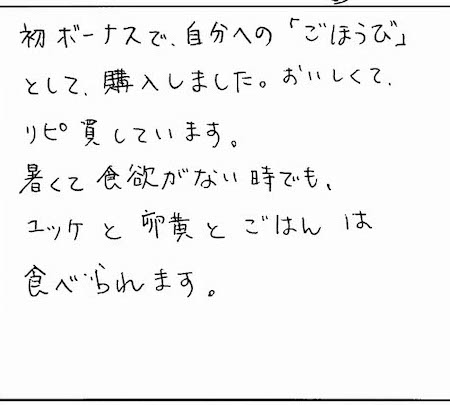 初ボーナスで、自分への「ごほうび」
として、購入しました。おいしくて、
リピ買しています。
暑くて食欲がない時でも、
ユッケと卵黄とごはんは
食べられます。